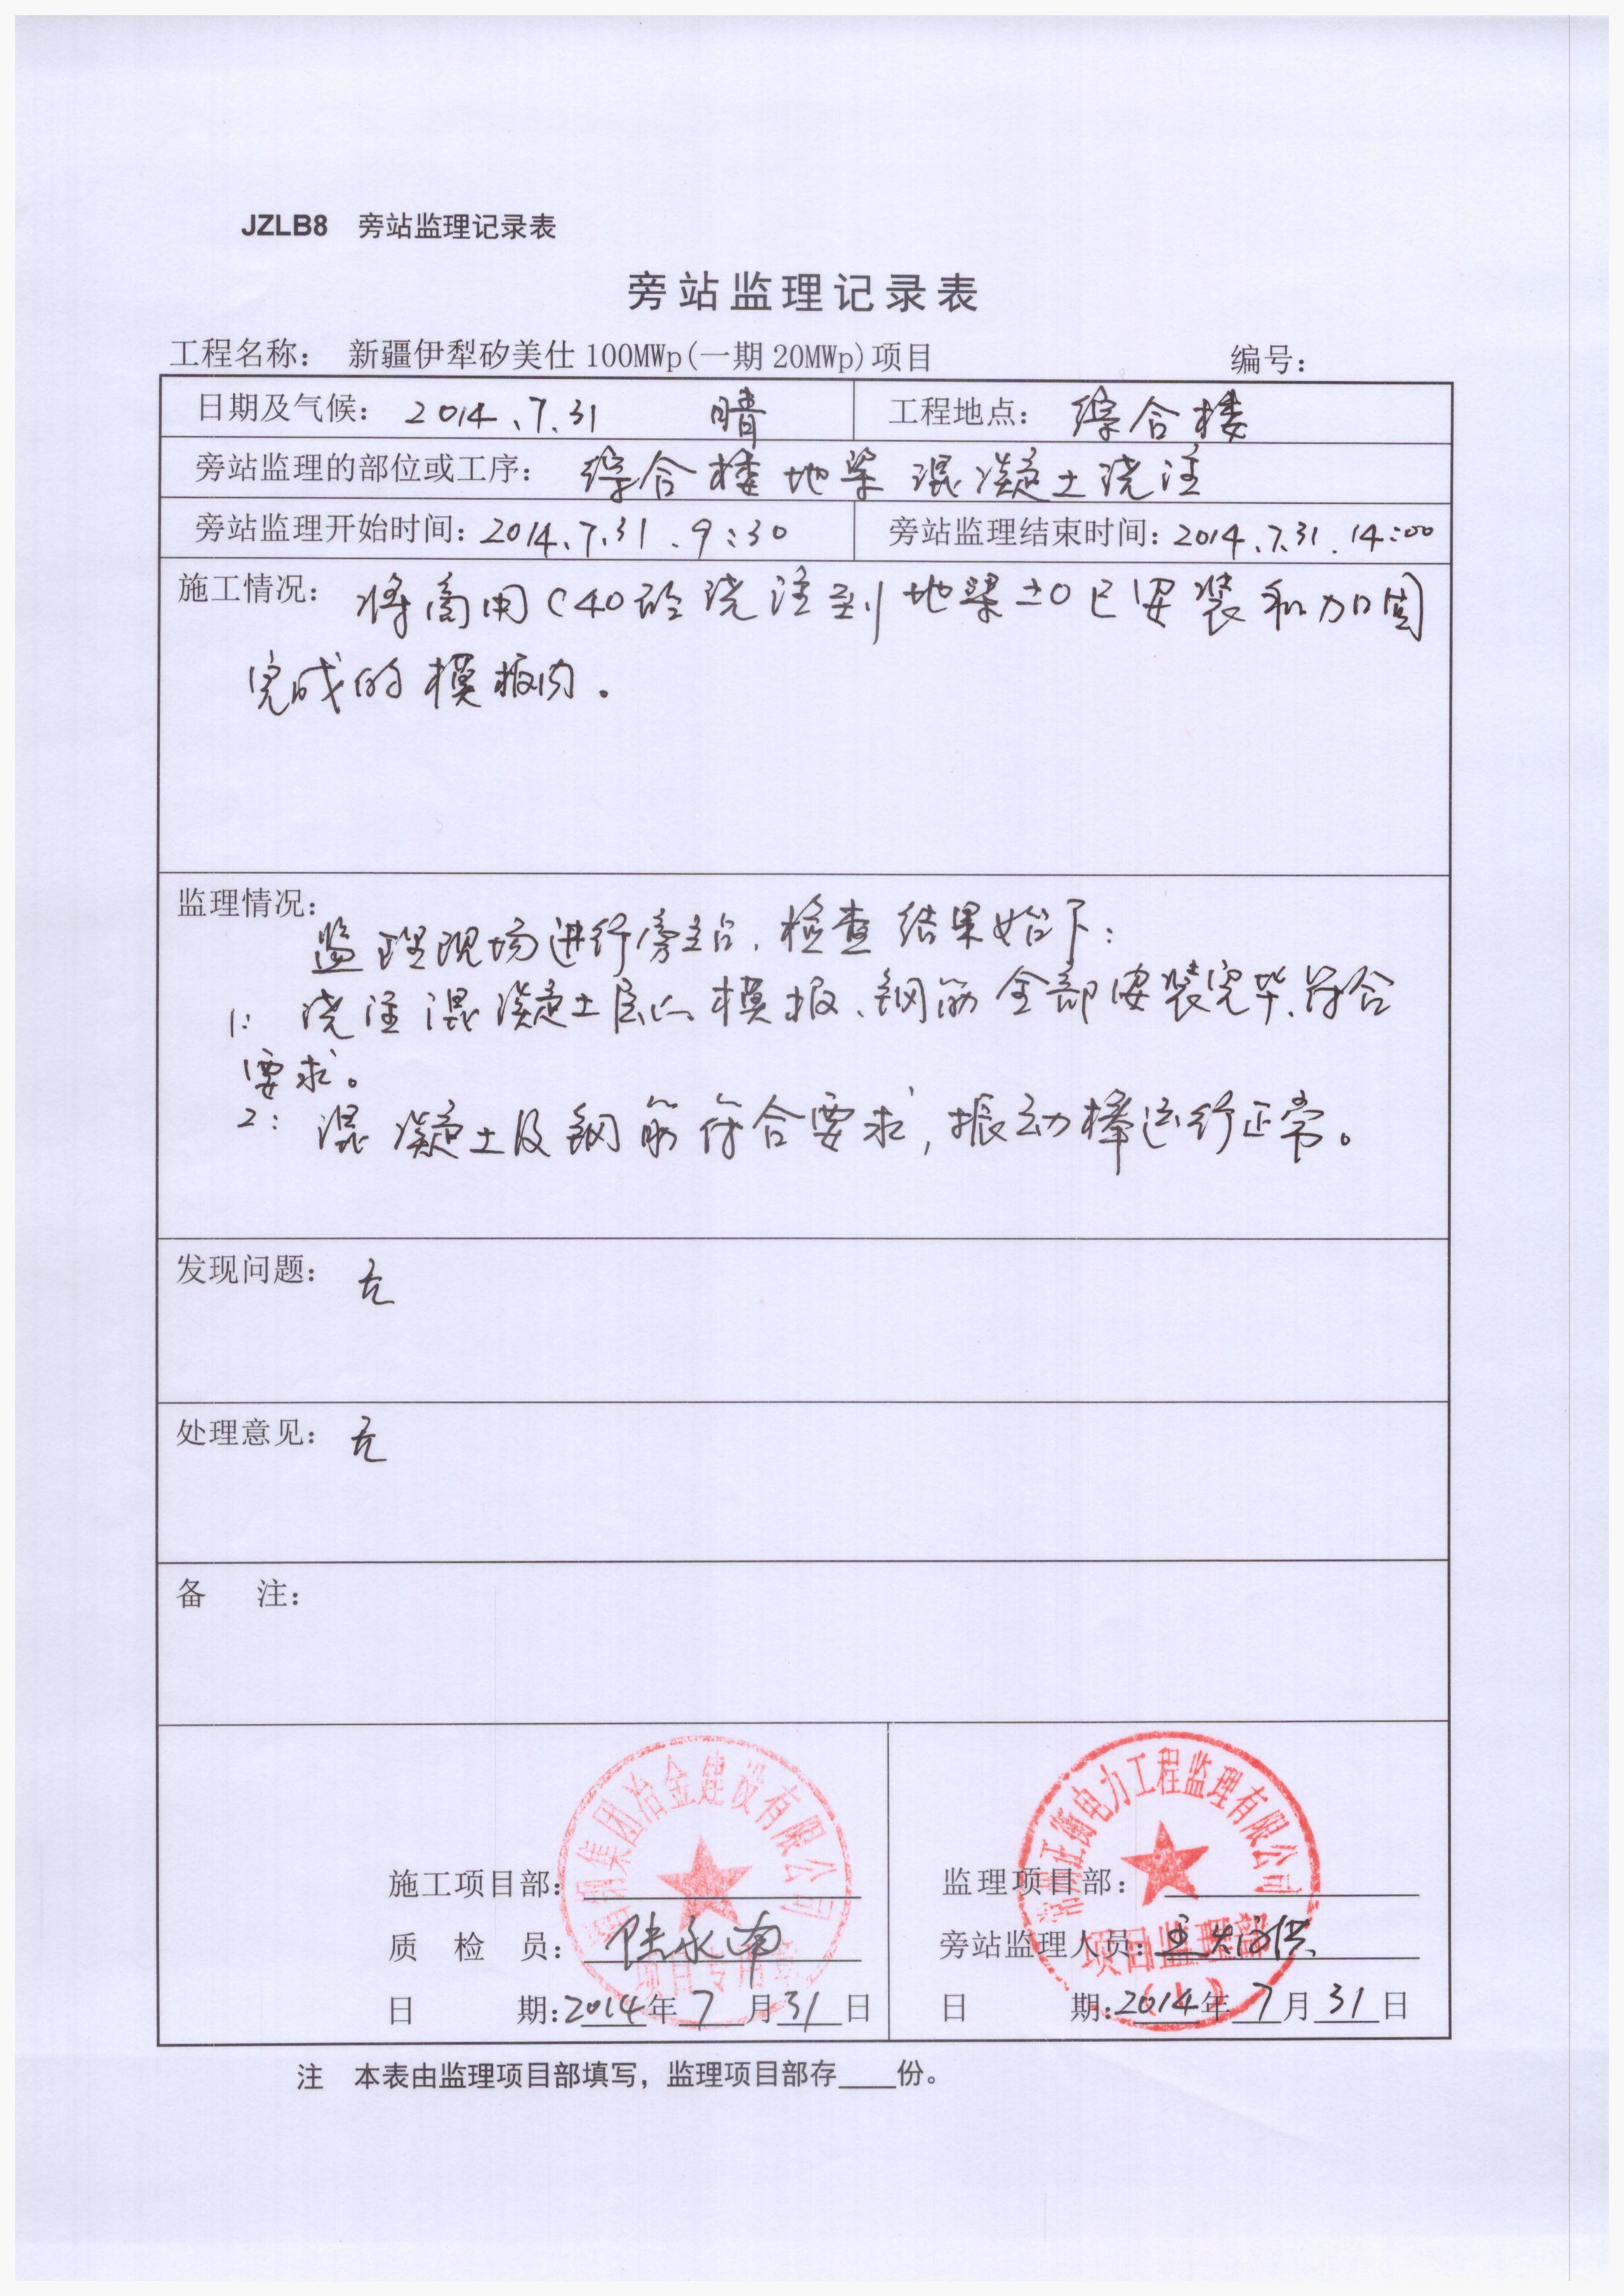 JZLB8 旁站监理记录表
旁站监理记录表
工程名称: 新疆伊犁矽美仕100MWp(一期20MWp)项目 编号:
日期及气候: 2014、7、31 晴 工程地点: 综合楼
旁站监理的部位或工序: 综合楼地梁混凝土浇注
旁站监理开始时间: 2014、7、31、9:30 旁站监理结束时间: 2014、7、31、14:00
施工情况: 将商用C40砼浇注到地梁±0已安装和加固
完成的模板内。
监理情况:
监理现场进行旁站,检查结果如下:
1: 浇注混凝土层的模板、钢筋全部安装完毕、符合
要求。
2: 混凝土及钢筋符合要求,振动棒运行正常。
发现问题: 无
处理意见: 无
备 注:
集团冶金建设有限公司
项目专用章
正衡电力工程监理有限公司
项目监理部
施工项目部: 监理项目部:
质 检 员: 永南 旁站监理人员: 王
日 期: 2014年7月31日 日 期: 2014年7月31日
注 本表由监理项目部填写,监理项目部存____份。